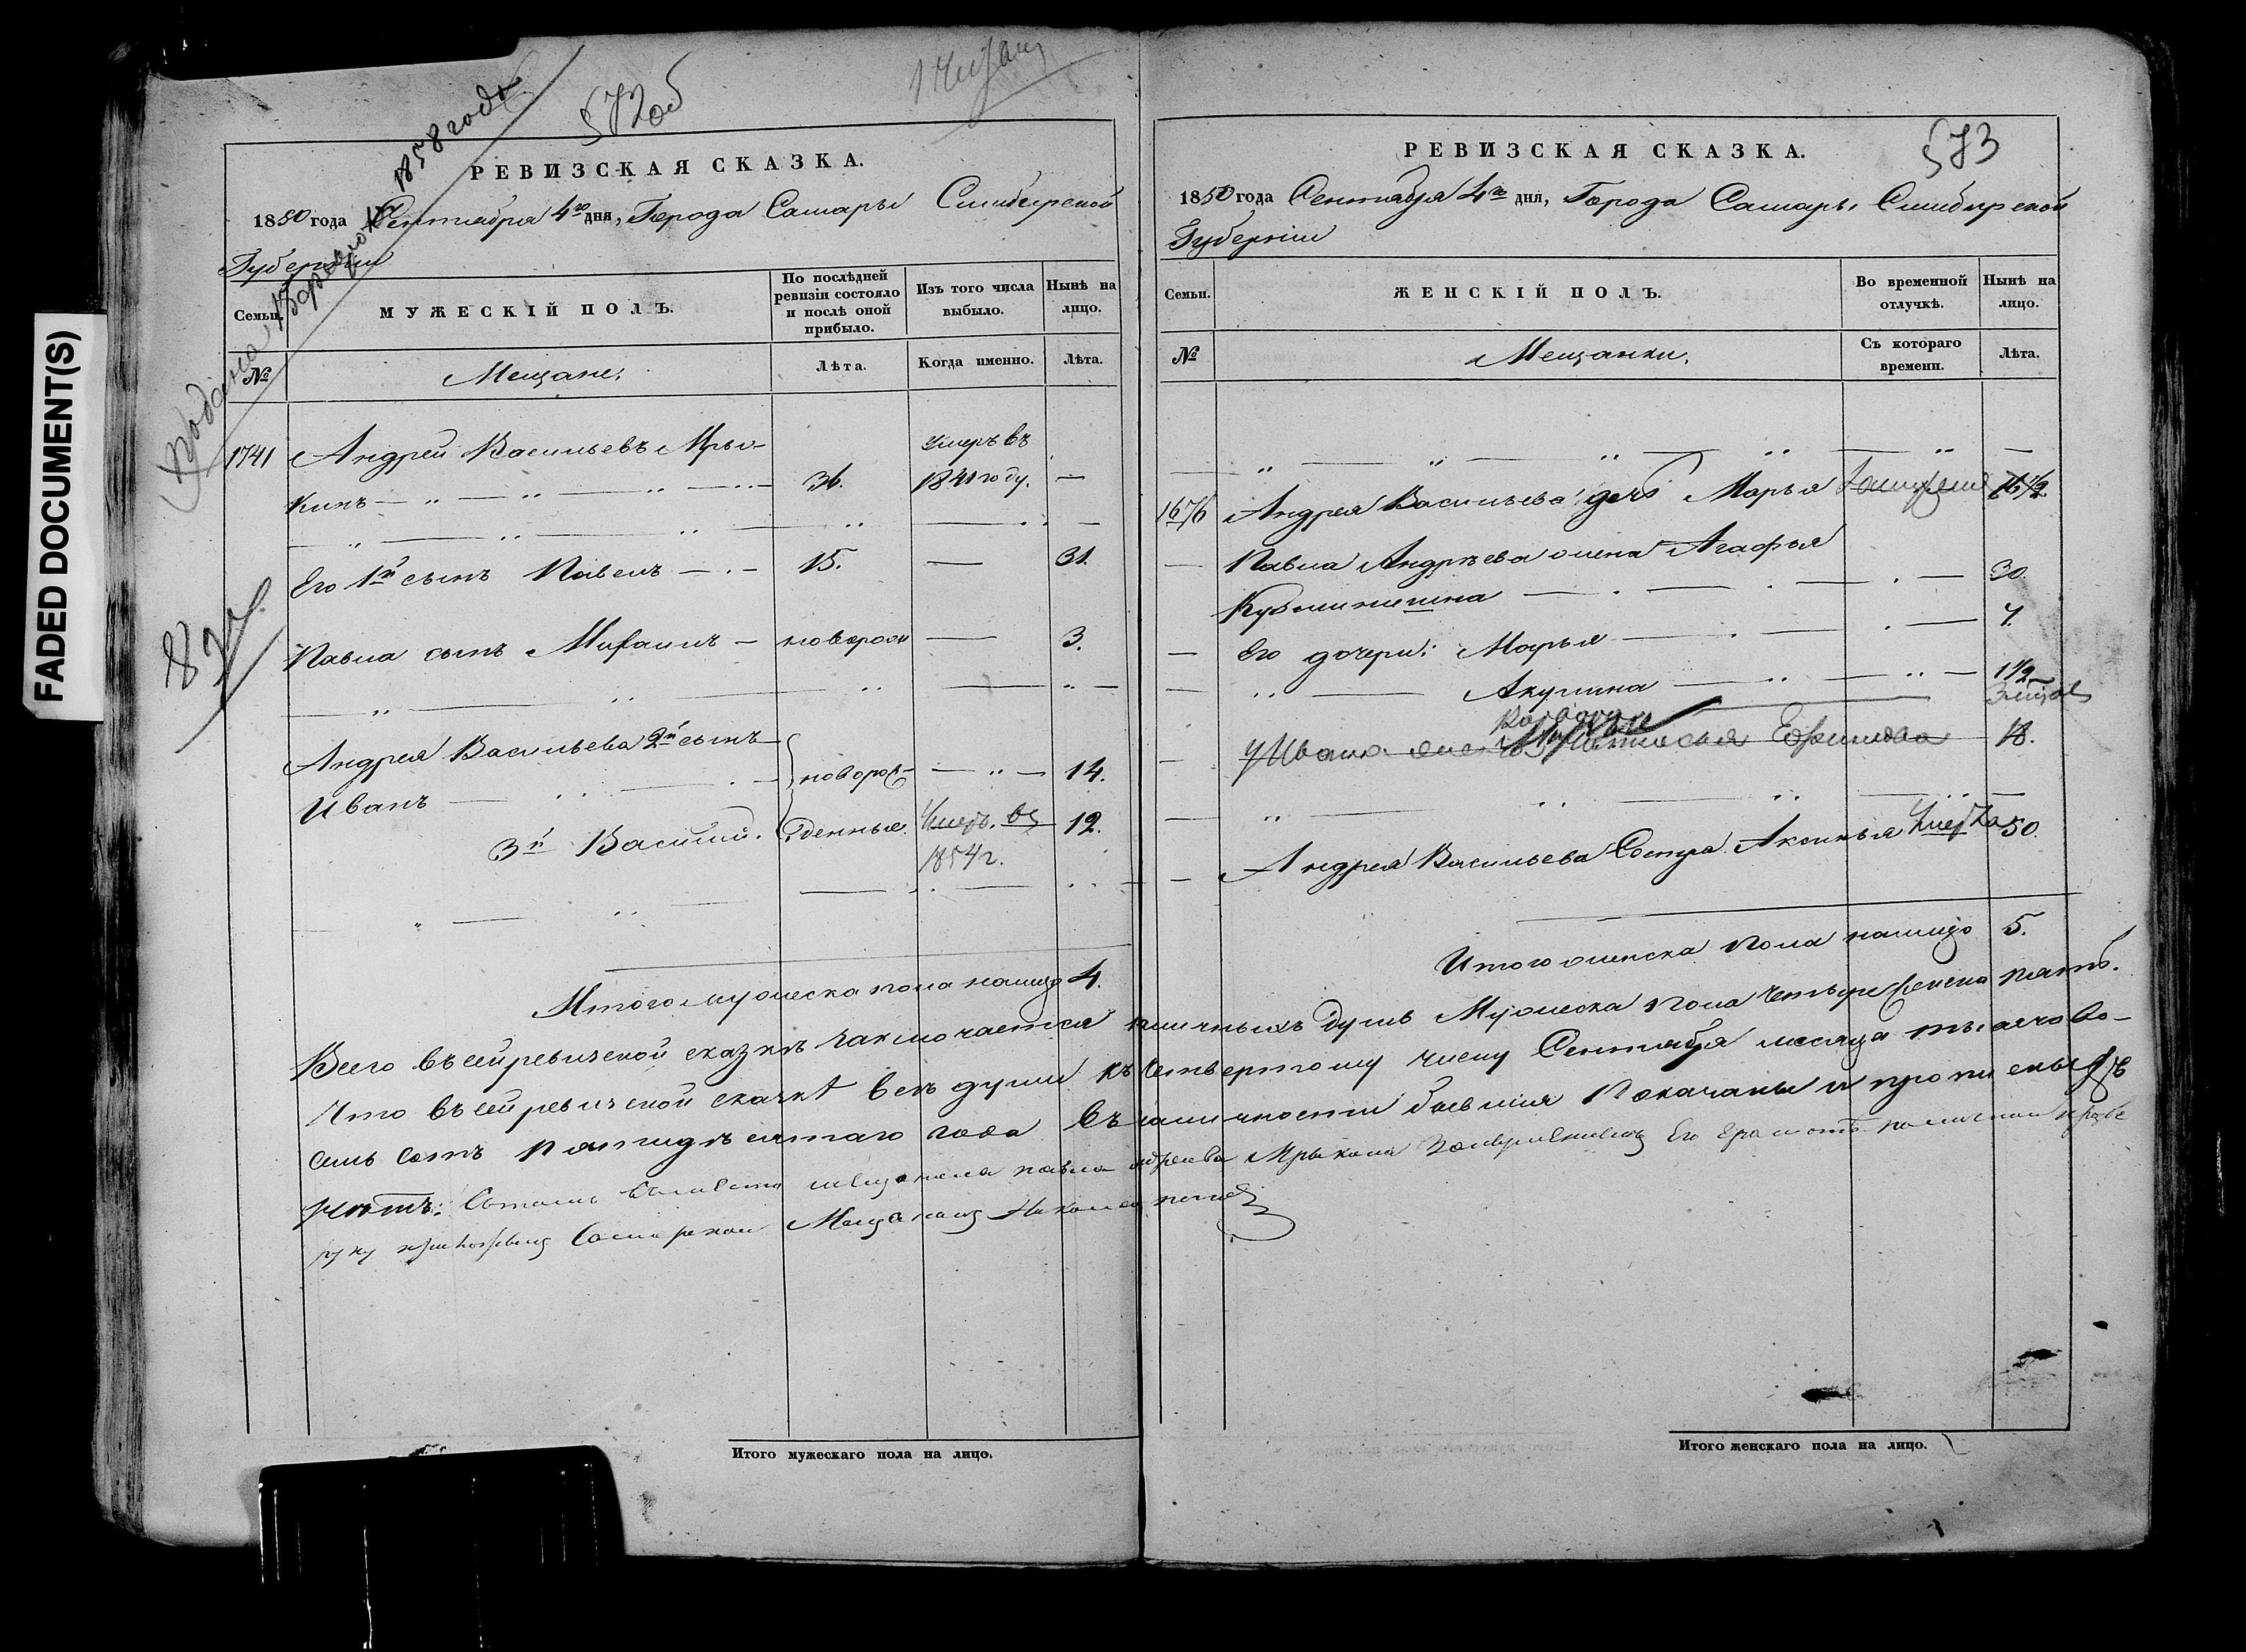 FADED DOCUMENT(S)
1858 года
572об
82
РЕВИЗСКАЯ СКАЗКА.
1850 года Сентября 4го дня, Города Самары Симбирской
Губернии
Семьи.
МУЖЕСКІЙ ПОЛЪ.
По послѣдней ревизіи состояло и послѣ оной прибыло.
Изъ того числа выбыло.
Нынѣ на лицо.
№
Мещане.
Лѣта.
Когда именно.
Лѣта.
1741 Андрей Васильевъ Мры- умеръ въ
кинъ 36. 1841 году. —
Его 1й сынъ Павелъ 15. — 31.
Павла сынъ Михаилъ — новорож — 3.
Андрея Васильева 2й сынъ
Иванъ новорож- 14.
3й Василий. денные. Умеръ въ 12.
1854 г.
Итого мужеска пола налицо 4.
Итого мужескаго пола на лицо.
573
РЕВИЗСКАЯ СКАЗКА.
1850 года Сентября 4го дня, Города Самары Симбирской
Губернии
Семьи.
ЖЕНСКІЙ ПОЛЪ.
Во временной отлучкѣ.
Нынѣ на лицо.
№
Мещанки.
Съ котораго времени.
Лѣта.
1676 Андрея Васильева дочь Марья 16 1/2
Павла Андрѣева жена Агафья
Кузминишна 30.
Его дочери: Марья 7.
Акулина 1 1/2
у Ивана жена Ефимова 18.
Андрея Васильева Сестра Аксинья 50.
Итого женска пола налицо 5.
Всего въ сей ревизской сказкѣ заключается наличныхъ душъ Мужеска пола четыре женска пять.
Что въ сей ревизской сказкѣ все души къ четвертому числу Сентября месяца тысяча во-
семь сотъ пятидесятаго года въ наличности бывшия показаны и прописныхъ
нетъ: Мещанина Павла Андреева Мрыкина
руку приложилъ Самарской Мещанинъ
Итого женскаго пола на лицо.